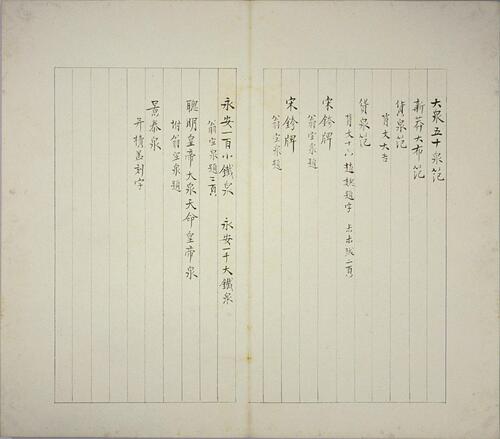 大泉五十泉范
新莽大布范
貨泉范
背文大吉
貨泉范
背文十八 趙魏題字
宋鈐牌
翁宜泉題
宋鈐牌
翁宜泉題
永安一百小鐵泉 永安一千大鐵泉
翁宜泉題二頁
聰明皇帝大泉天命皇帝泉
坿翁宜泉題
景泰泉
年積善刻字